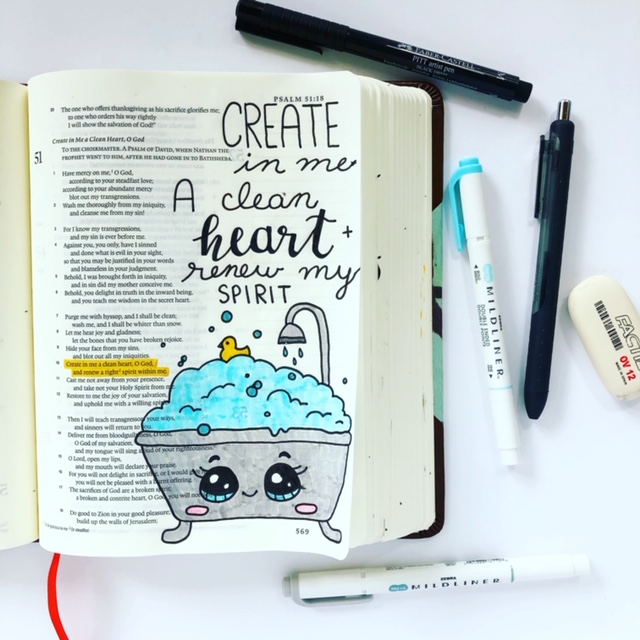 FABER-CASTELL
PITT artist pen
PSALM 51:18
The one who offers thanksgiving as his sacrifice glorifies me;
to one who orders his way rightly
I will show the salvation of God!"
Create in Me a Clean Heart, O God
51
TO THE CHOIRMASTER. A PSALM OF DAVID, WHEN NATHAN THE
PROPHET WENT TO HIM, AFTER HE HAD GONE IN TO BATHSHEBA.
1 Have mercy on me, O God,
according to your steadfast love;
according to your abundant mercy
blot out my transgressions.
2 Wash me thoroughly from my iniquity,
and cleanse me from my sin!
3 For I know my transgressions,
and my sin is ever before me.
4 Against you, you only, have I sinned
and done what is evil in your sight,
so that you may be justified in your words
and blameless in your judgment.
5 Behold, I was brought forth in iniquity,
and in sin did my mother conceive me.
6 Behold, you delight in truth in the inward being,
and you teach me wisdom in the secret heart.
7 Purge me with hyssop, and I shall be clean;
wash me, and I shall be whiter than snow.
8 Let me hear joy and gladness;
let the bones that you have broken rejoice.
9 Hide your face from my sins,
and blot out all my iniquities.
Create in me a clean heart, O God,
and renew a right spirit within me.
Cast me not away from your presence,
and take not your Holy Spirit from
Restore to me the joy of your salvation,
and uphold me with a willing
Then I will teach transgressors your ways,
and sinners will return to
Deliver me from bloodguiltiness, O God,
O God of my salvation,
and my tongue will sing aloud of your righteousness.
O Lord, open my lips,
and my mouth will declare your praise.
For you will not delight in sacrifice, or I would
you will not be pleased with a burnt offering.
The sacrifices of God are a broken
a broken and contrite heart, O God, you will not
Do good to Zion in your good pleasure;
build up the walls of Jerusalem;
569
CREATE
in me
A clean
heart +
renew my
SPIRIT
MILDLINER
DOUBLE ENDED
OV 12
ZEBRA
MILDLINER